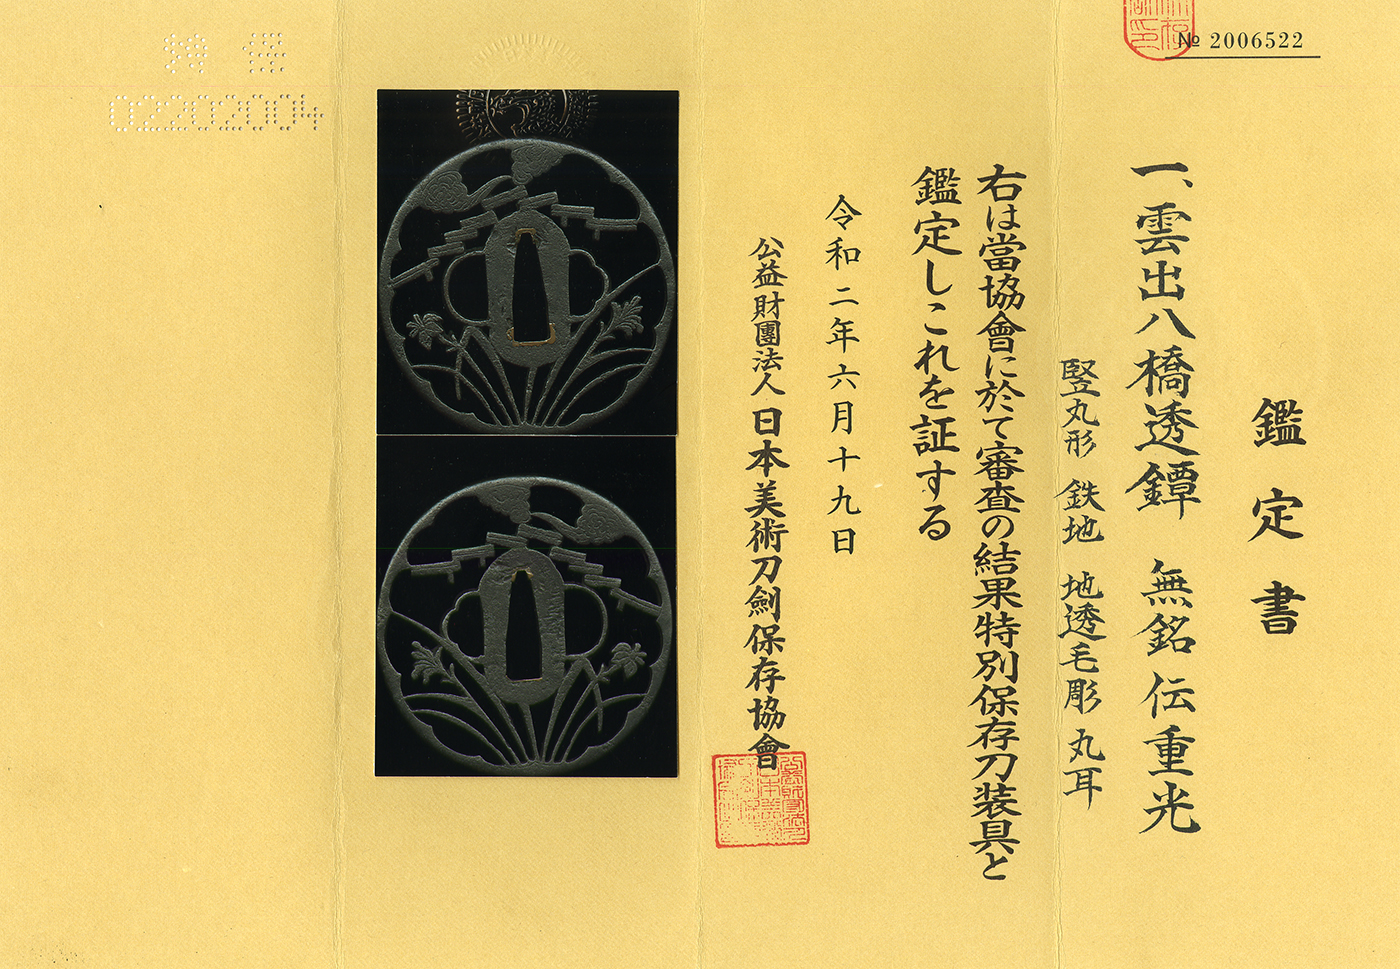 № 2006522
鑑定書
一、雲出八橋透鐔　無銘 伝重光
竪丸形　鉄地　地透毛彫　丸耳
右は當協會に於て審査の結果特別保存刀装具と
鑑定しこれを証する
令和二年六月十九日
公益財團法人 日本美術刀劍保存協會
02202004